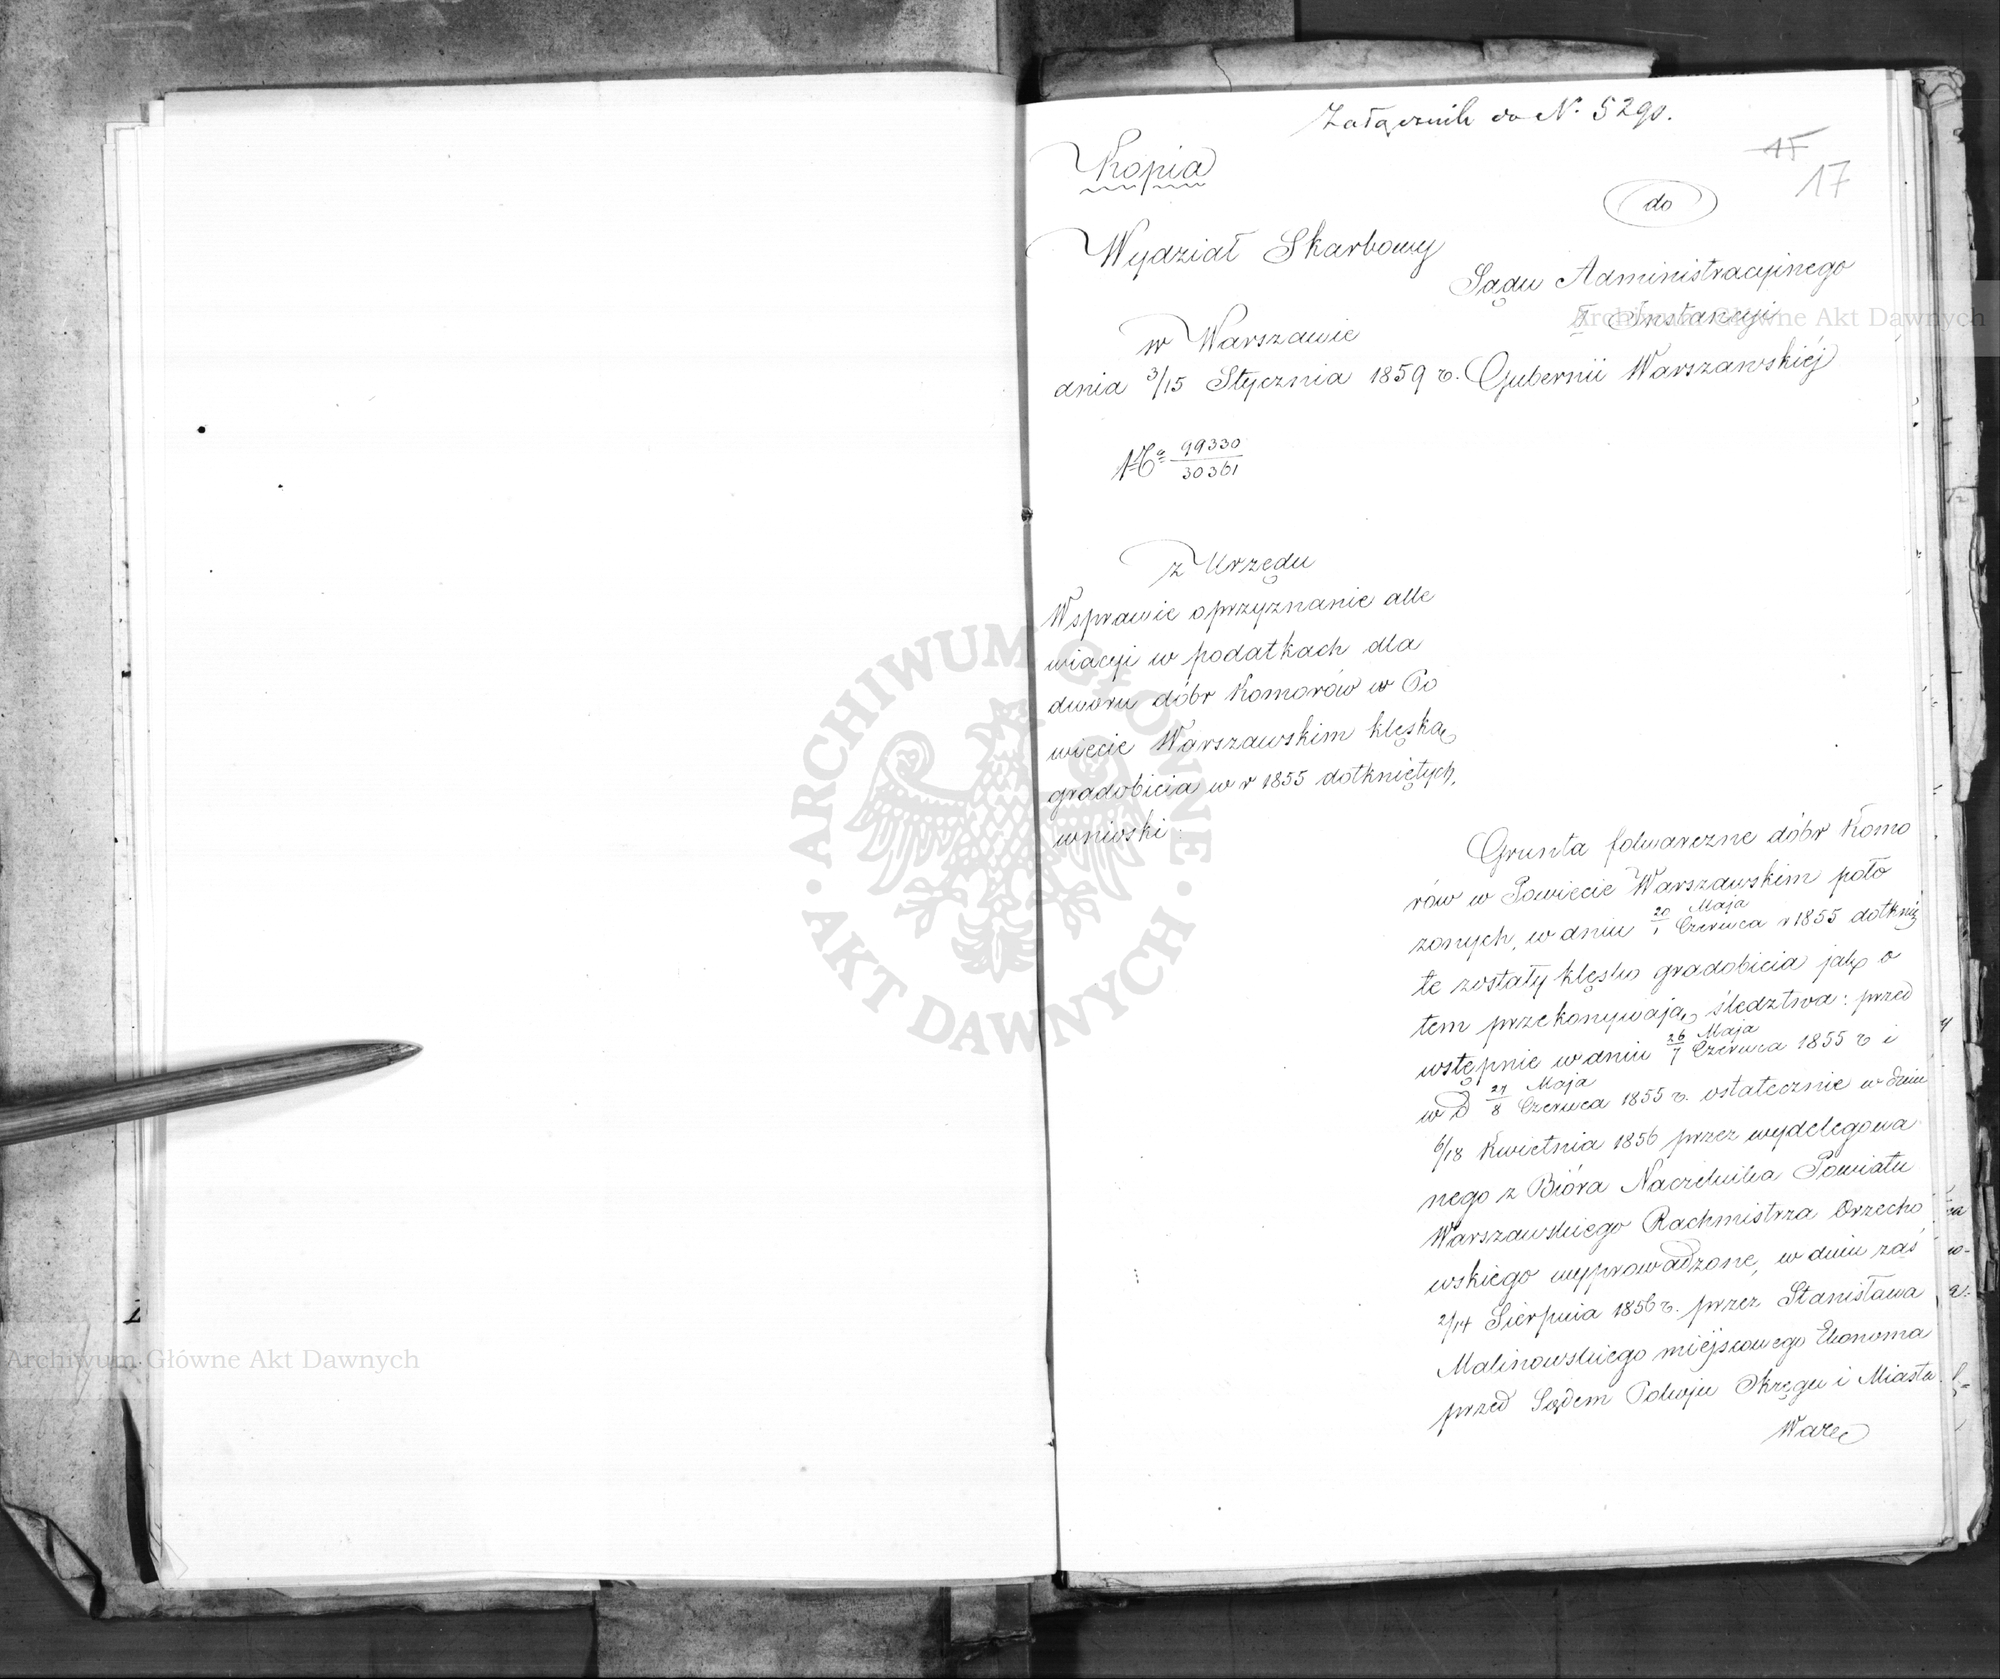 Załącznik do N. 5290.
15
17
Kopia
do
Wydział Skarbowy
Sądu Administracyinego
I Instancyi
w Warszawie
dnia 3/15 Stycznia 1859 r.
Gubernii Warszawskiéj
No 99330/30361
z Urzędu
W sprawie o przyznanie alle
wiacyi w podatkach dla
dworu dóbr Komorów w Po
wiecie Warszawskim klęską
gradobicia w r 1855 dotkniętych,
wnioski
Grunta folwarczne dóbr Komo
rów w Powiecie Warszawskim poło
żonych, w dniu 20 Maja/1 Czerwca r 1855 dotknię
te zostały klęską gradobicia jak o
tem przekonywają śledztwa: przed
wstępnie w dniu 26 Maja/7 Czerwca 1855 r i
w D 27 Maja/8 Czerwca 1855 r. ostatecznie w dniu
6/18 Kwietnia 1856 przez wydelegowa
nego z Bióra Naczelnika Powiatu
Warszawskiego Rachmistrza Orzecho
wskiego wyprowadzone, w dniu zaś
2/14 Sierpnia 1856 r. przez Stanisława
Malinowskiego miéjscowego Ekonoma
przed Sądem Pokoju Okręgu i Miasta
Warec
Archiwum Główne Akt Dawnych
Archiwum Główne Akt Dawnych
ARCHIWUM GŁÓWNE
AKT DAWNYCH